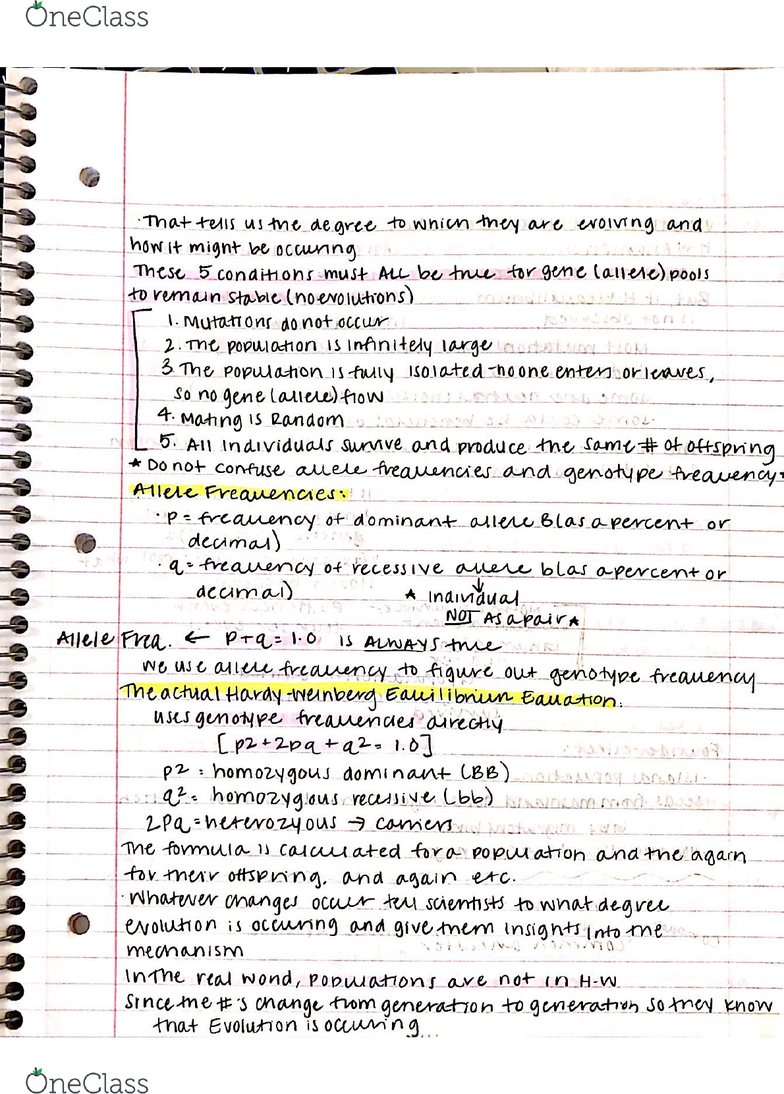 OneClass
·That tells us the degree to which they are evolving and
how it might be occuring
These 5 conditions must ALL be true for gene (allele) pools
to remain stable (no evolutions)
1. Mutations do not occur
2. The population is infinitely large
3. The population is fully isolated - no one enters or leaves,
so no gene (allele) flow
4. Mating is Random
5. All individuals survive and produce the same # of offspring
* Do not confuse allele frequencies and genotype frequency*
Allele Frequencies:
· p = frequency of dominant allele B (as a percent or
decimal)
· q = frequency of recessive allele b (as a percent or
decimal) * individual
NOT As a pair *
Allele Freq. ← p+q = 1.0 is ALWAYS true
We use allele frequency to figure out genotype frequency
The actual Hardy-Weinberg Equilibrium Equation:
uses genotype frequencies directly
[p2 + 2pq + q2 = 1.0]
p2 = homozygous dominant (BB)
q2 = homozygous recessive (bb)
2pq = heterozyous → carriers
The formula is calculated for a population and the again
for their offspring, and again etc.
·Whatever changes occur tell scientists to what degree
evolution is occuring and give them insights into the
mechanism
In the real world, populations are not in H-W
Since the #'s change from generation to generation so they know
that Evolution is occuring...
OneClass